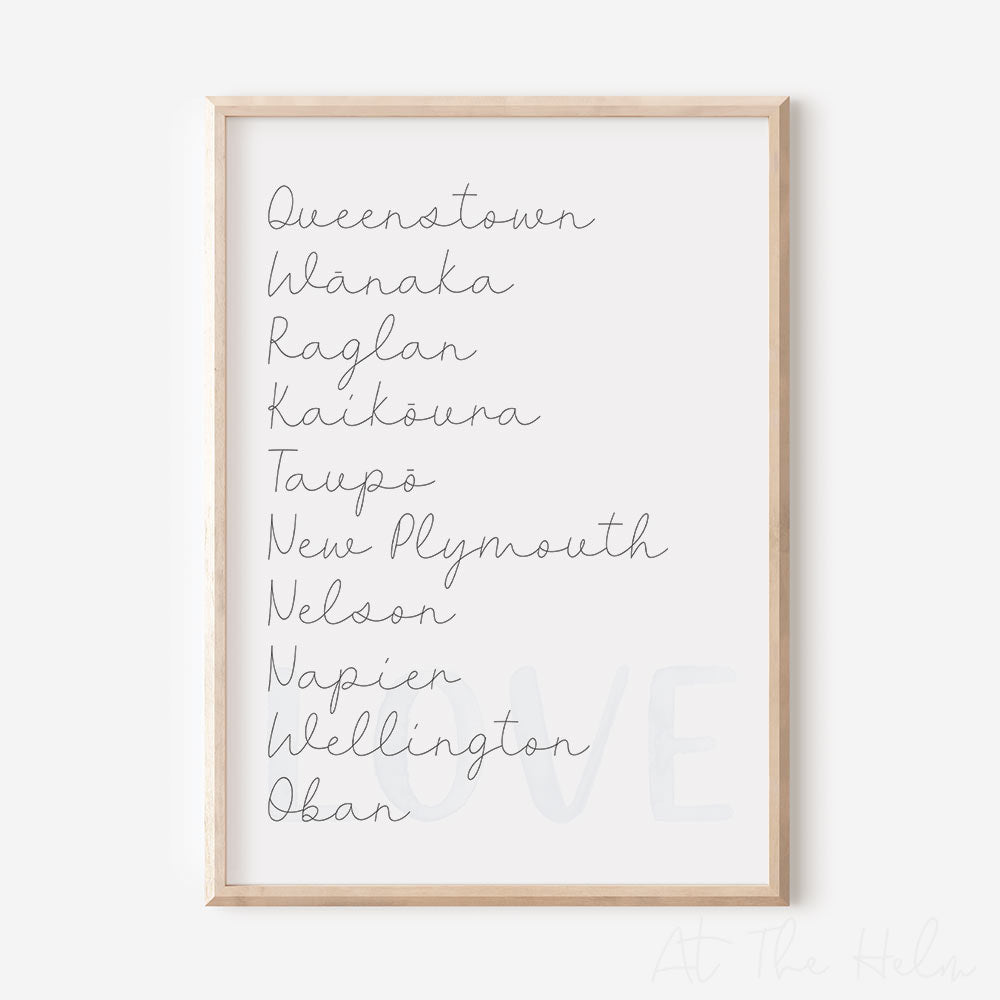 Queenstown
Wānaka
Raglan
Kaikōura
Taupō
New Plymouth
Nelson
Napier
Wellington
Oban
LOVE
At The Helm